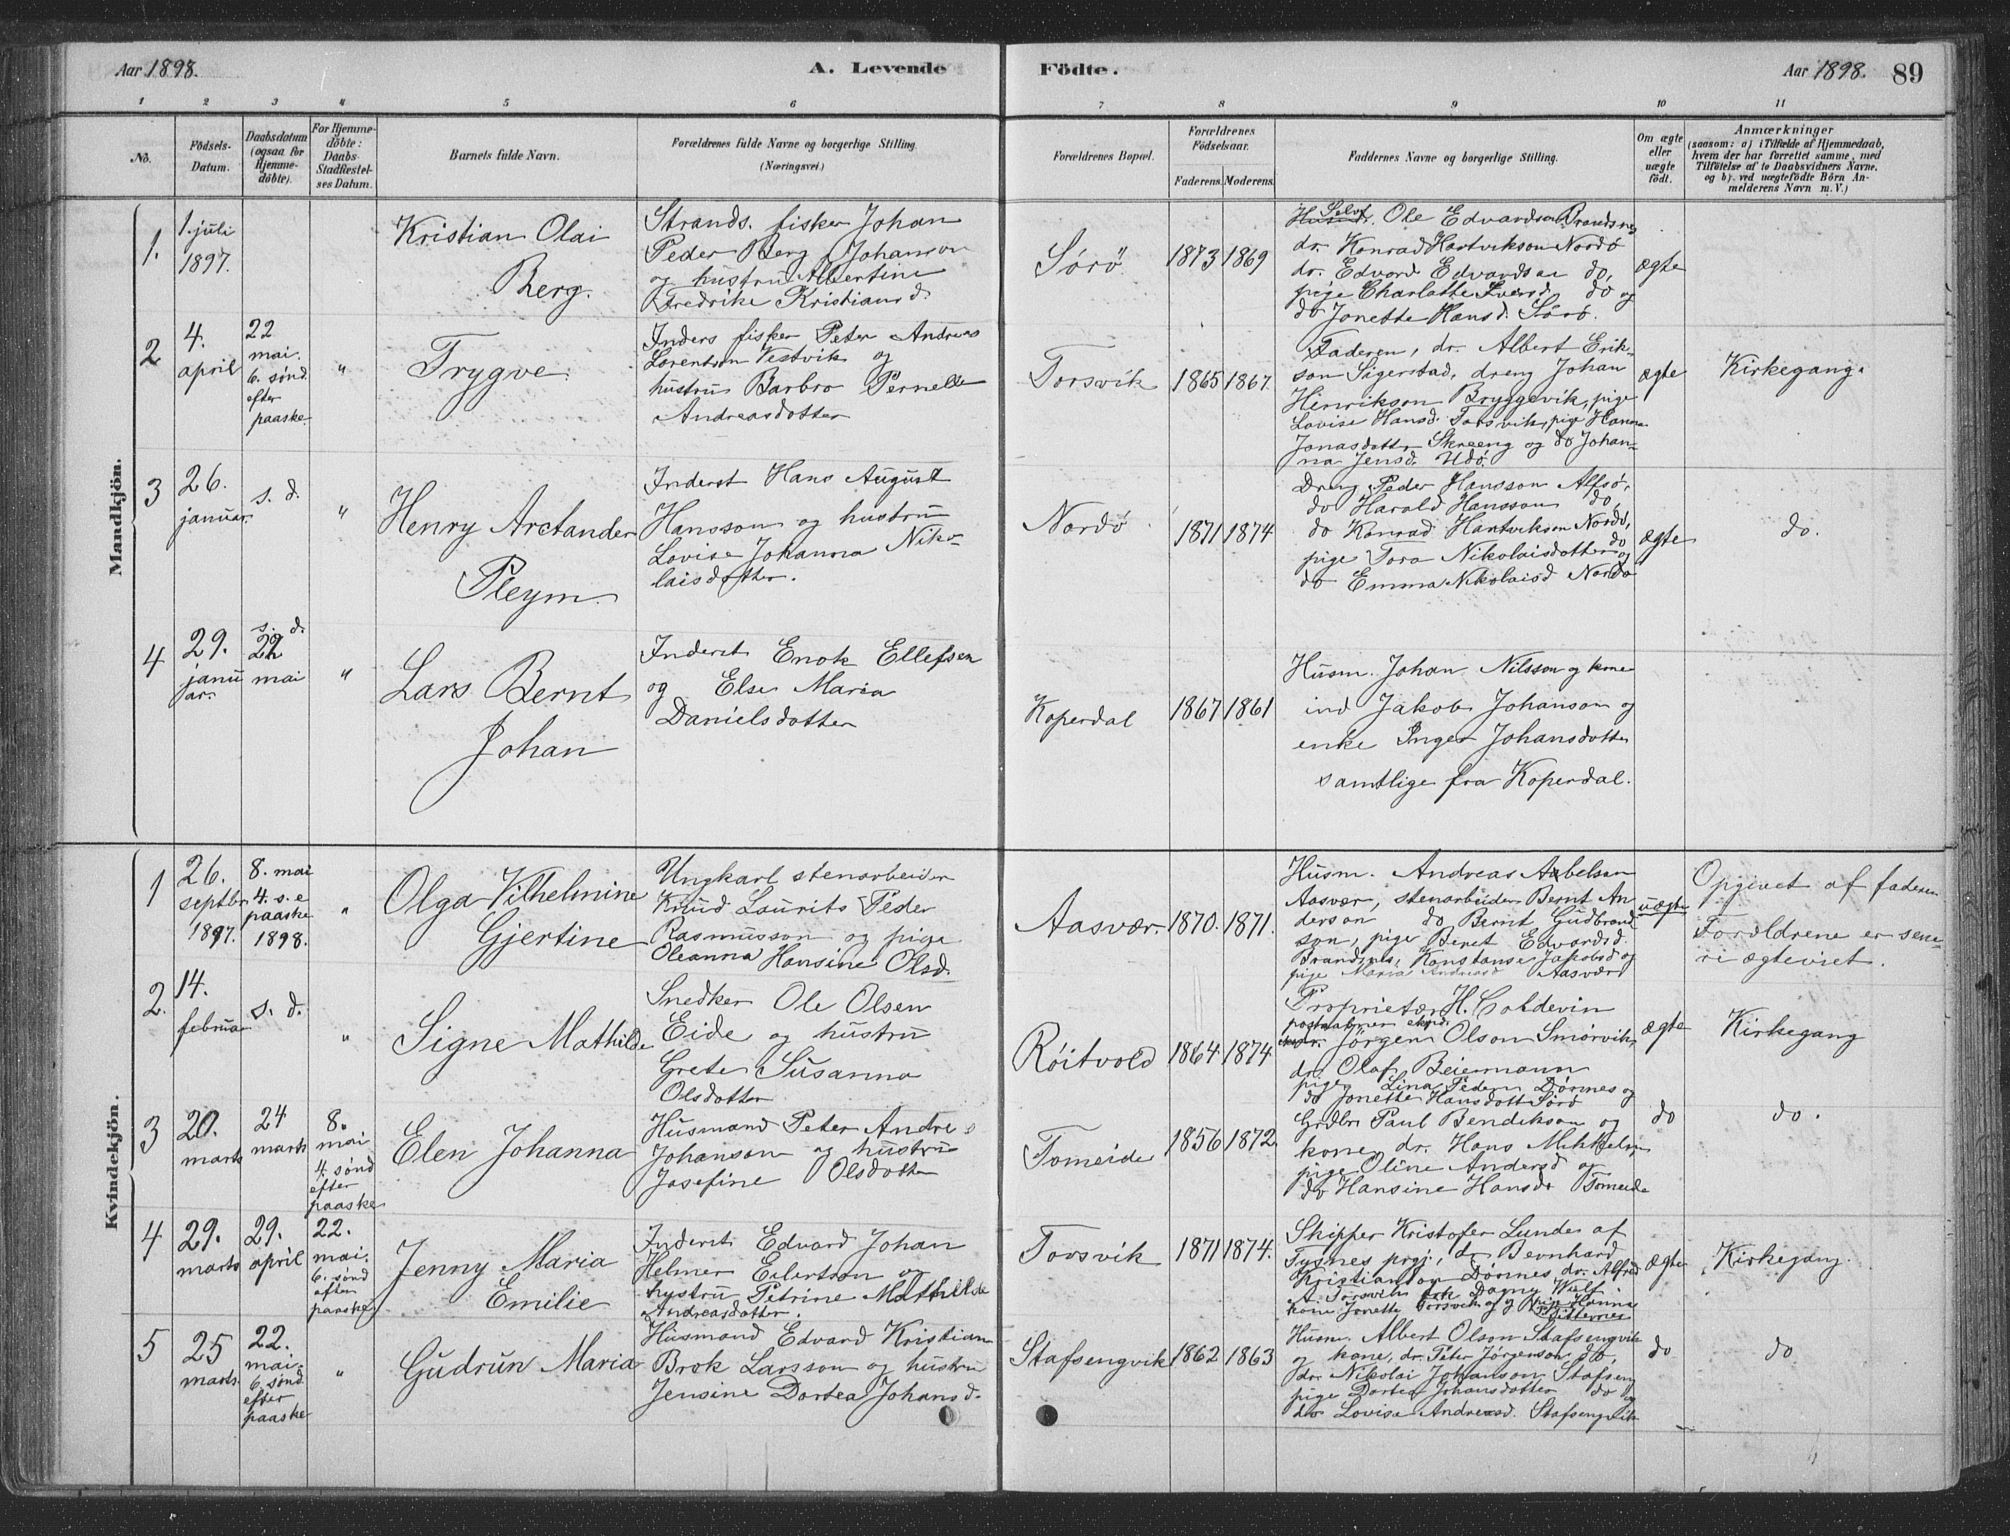 Aar 1898.
A. Levende
Födte.
Aar 1898. 89
1 2 3 4 5 6 7 8 9 10 11
No.
Födsels-
Datum.
Daabsdatum
(ogsaa for
Hjemme-
döbte).
For Hjemme-
döbte:
Daabs-
Stadfæstel-
ses Datum.
Barnets fulde Navn.
Forældrenes fulde Navne og borgerlige Stilling.
(Næringsvei.)
Forældrenes Bopæl.
Forældrenes
Födselsaar.
Faderens. Moderens.
Faddernes Navne og borgerlige Stilling.
Om ægte
eller
uægte
födt.
Anmærkninger
(saasom: a) i Tilfælde af Hjemmedaab,
hvem der har forrettet samme, med
Tilföielse af to Daabsvidners Navne,
og b) ved uægtefödte Börn An-
melderens Navn m. V.)
Mandkjön.
1.
1. juli
1897.
Kristian Olai
Berg.
Strands. fisker Johan
Peder Berg Johanson
og hustru Albertine
Fredrike Kristiansd.
Sørø
1873 1869
Selv. Ole Edvardson Brandsnes
dr. Konrad Hartvikson Nordø
dr. Edvard Edvardsen do,
pige Charlotte Iversd. do og
do Jonette Hansd. Sørø.
ægte
2
4.
april
22
mai.
6. sønd.
efter
paaske.
"
Trygve.
Inders fisker Peter Andreas
Lorentson Vestvik og
hustru Barbro Pernelle
Andreasdotter
Torsvik
1865 1867.
Faderen, dr. Albert Erik-
son Sigerstad, dreng Johan
Hinrikson Bryggevik, pige
Lovise Hansd. Torsvik, pige Hanna
Jonasdotter Skreeng og do Johan-
na Jensd. Udø.
ægte
Kirkegang.
3
26.
januar.
s. d.
"
Henry Arctander
Pleym.
Inderst Hans August
Hansson og hustru
Lovise Johanna Niko-
laisdotter.
Nordø
1871 1874
Dreng Peder Hansson Alfsø,
do Harald Hansson do,
do Konrad Hartvikson Nordø,
pige Tora Nikolaisdotter do og
do Emma Nikolaisd Nordø
ægte
do.
4
29.
janu
ar.
s. d.
22
mai
"
Lars Bernt
Johan
Inderst Enok Ellefsen
og Else Maria
Danielsdotter
Koperdal
1867 1861
Husm. Johan Nilsson og kone
ind Jakob Johanson og
enke Inger Johansdotter
samtlige fra Koperdal.
Kvindekjön.
1
26.
septbr
1897.
8. mai
4. s. e
paaske
1898.
"
Olga Vilhelmine
Gjertine
Ungkarl stenarbeider
Knud Laurits Peder
Rasmusson og pige
Oleanna Hansine Olsd.
Aasvær.
1870. 1871.
Husm. Andreas Aabelson
Aasvær, stenarbeider Bernt An
derson do Bernt Gudbrand
son, pige Beret Edvardsd.
Brandsnes, Konstanse Jakobsd og
pige Maria Andreasd Aasvær
uægte
Opgivet af faderen
Forældrene er sene-
re ægteviet.
2.
14.
februar
s. d.
"
Signe Mathilde
Snedker Ole Olsen
Eide og hustru
Grete Susanna
Olsdotter
Röitvold
1864. 1874.
Proprietær H. Coldevin
Jørgen Olson Smørvik,
dr. Olaf Beiermann
pige Lina Peders Dørnes og
do Jonette Hansdott Sørø
ægte
Kirkegang
3
20.
marts
24
marts
8.
mai
4. sønd
efter
paaske
Elen Johanna
Husmand Peter Andreas
Johanson og hustru
Josefine Olsdotter
Tomeide
1856 1872
Grdbr Paul Bendikson og
kone, dr. Hans Mikkelsen
pige Oline Andersd og
do Hansine Hansd Tomeide
do
do.
4
29.
marts
29.
april
22.
mai.
6. sønd
efter
paaske.
Jenny Maria
Emilie
Inderst Edvard Johan
Helmer Eilertson og
hustru Petrine Mathilde
Andreasdotter.
Torsvik
1871 1874.
Skipper Kristofer Lunde af
Tysnes prgj, dr Bernhard
Kristianson Dørnes dr. Alfred
A. Torsvik Dagny Wulf
kone Jonette Torsvik og Hanna
ægte
Kirkegang.
5
25
marts.
22.
mai.
6. sønd
efter
paaske
"
Gudrun Maria
Husmand Edvard Kristian
Brok Larsson og hustru
Jensine Dortea Johansd.
Stafsengvik
1862 1863
Husm. Albert Olson Stafsengvik
og kone, dr. Peter Jørgenson do,
dr. Nikolai Johanson Stafseng
pige Dortea Johansdotter do og
do Lovise Andreasd. Stafsengvik
do
do